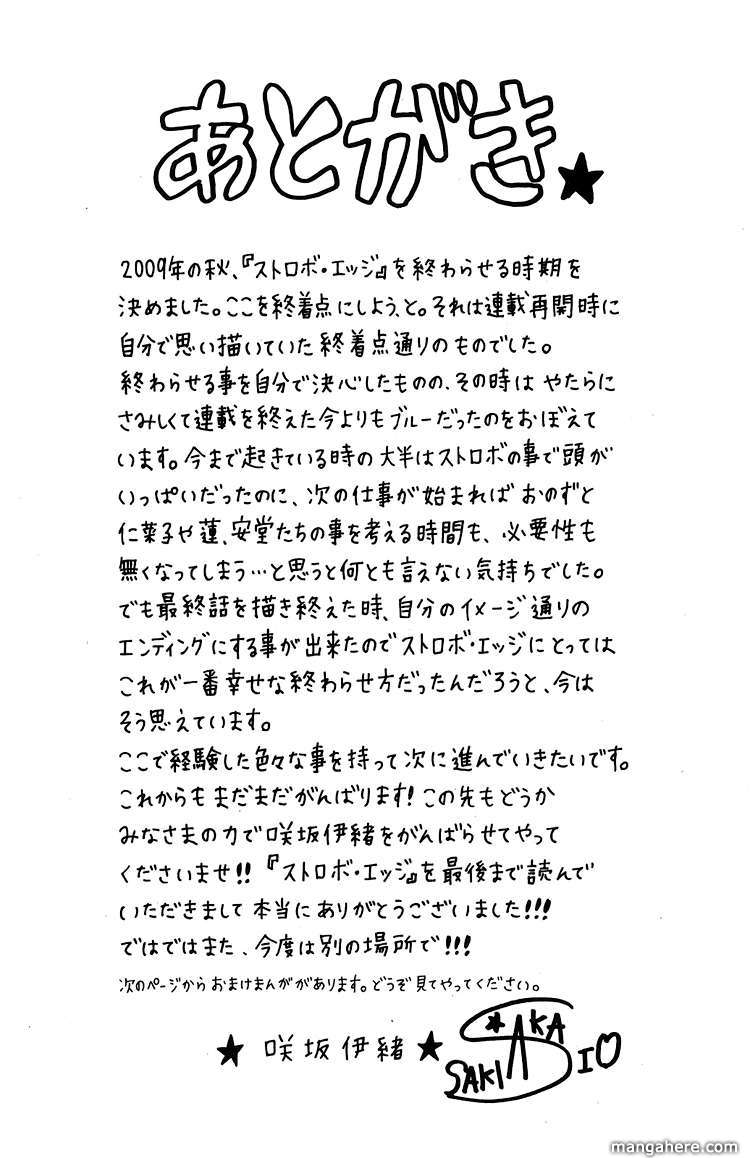 あとがき★
2009年の秋、『ストロボ・エッジ』を終わらせる時期を
決めました。ここを終着点にしよう、と。それは連載再開時に
自分で思い描いていた終着点通りのものでした。
終わらせる事を自分で決心したものの、その時は やたらに
さみしくて連載を終えた今よりもブルーだったのをおぼえて
います。今まで起きている時の大半はストロボの事で頭が
いっぱいだったのに、次の仕事が始まれば おのずと
仁菜子や蓮、安堂たちの事を考える時間も、必要性も
無くなってしまう…と思うと何とも言えない気持ちでした。
でも最終話を描き終えた時、自分のイメージ通りの
エンディングにする事が出来たのでストロボ・エッジにとっては
これが一番幸せな終わらせ方だったんだろうと、今は
そう思えています。
ここで経験した色々な事を持って次に進んでいきたいです。
これからもまだまだがんばります!この先もどうか
みなさまの力で咲坂伊緒をがんばらせてやって
くださいませ!!『ストロボ・エッジ』を最後まで読んで
いただきまして本当にありがとうございました!!!
ではではまた、今度は別の場所で!!!
次のページからおまけまんががあります。どうぞ見てやってください。
★ 咲坂伊緒 ★
SAKISAKA IO
mangahere.com